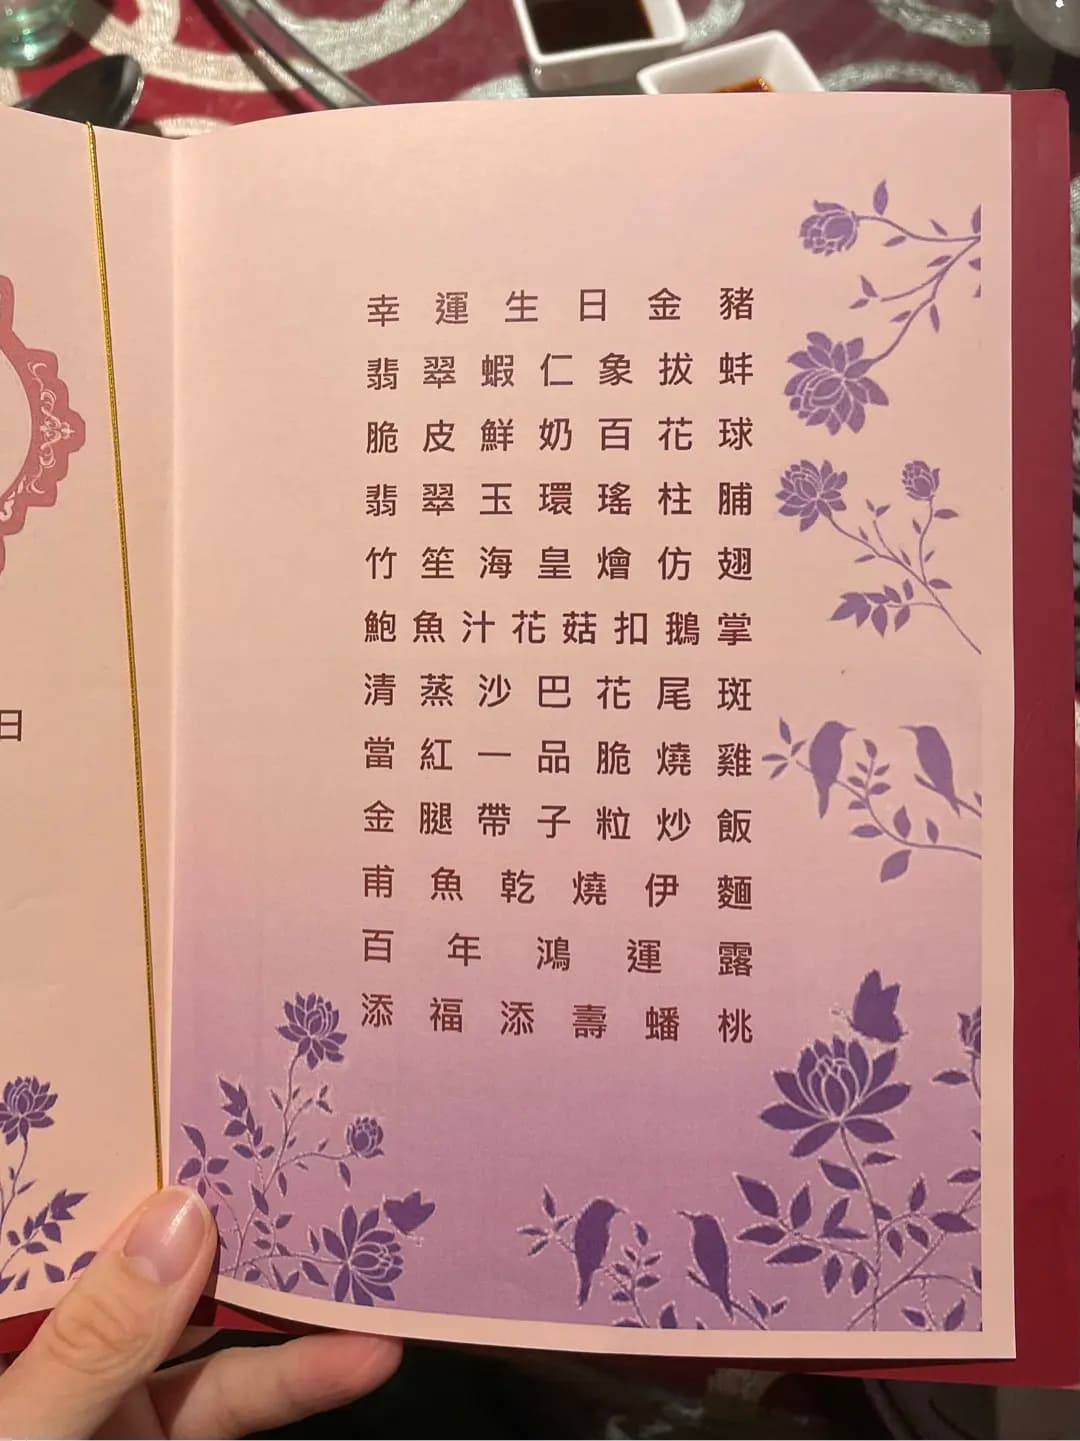 幸運生日金豬
翡翠蝦仁象拔蚌
脆皮鮮奶百花球
翡翠玉環瑤柱脯
竹笙海皇燴仿翅
鮑魚汁花菇扣鵝掌
清蒸沙巴花尾斑
當紅一品脆燒雞
金腿帶子粒炒飯
甫魚乾燒伊麵
百年鴻運露
添福添壽蟠桃
日